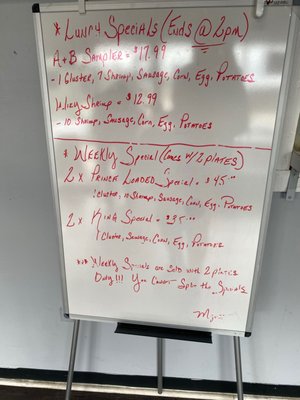 * Luxry Specials (Ends @ 2pm)
A+B Sampler = $17.99
- 1 Cluster, 7 Shrimp, Sausage, Corn, Egg, Potatoes
Shrimp = $12.99
- 10 Shrimp, Sausage, Corn, Egg, Potatoes
* Weekly Special (Comes w/ 2 plates)
2 x Prince Loaded Special = $45.00
1 Cluster, 10 Shrimp, Sausage, Corn, Egg, Potatoes
2 x King Special = $35.00
1 Cluster, Sausage, Corn, Egg, Potatoes
*** Weekly Specials are Sold with 2 plates
Only!!! You Cannot Split the Specials